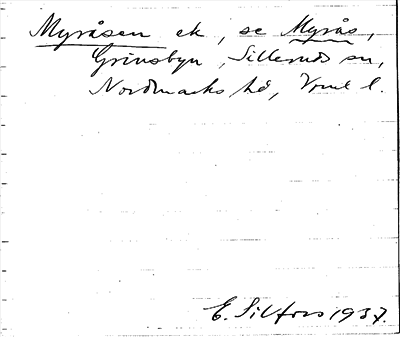 Myråsen ek, se Myrås,
Grinsbyn, Sillerud sn,
Nordmarks hd, Vrml l.
E. Silfors 1937.